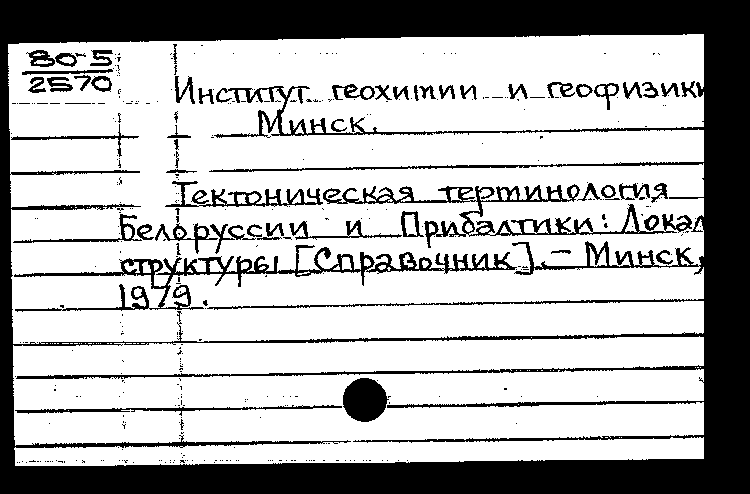 80-5
2570
Институт геохимии и геофизики
Минск.
Тектоническая терминология
Белоруссии и Прибалтики: Локал
структуры [Справочник].- Минск,
1979.